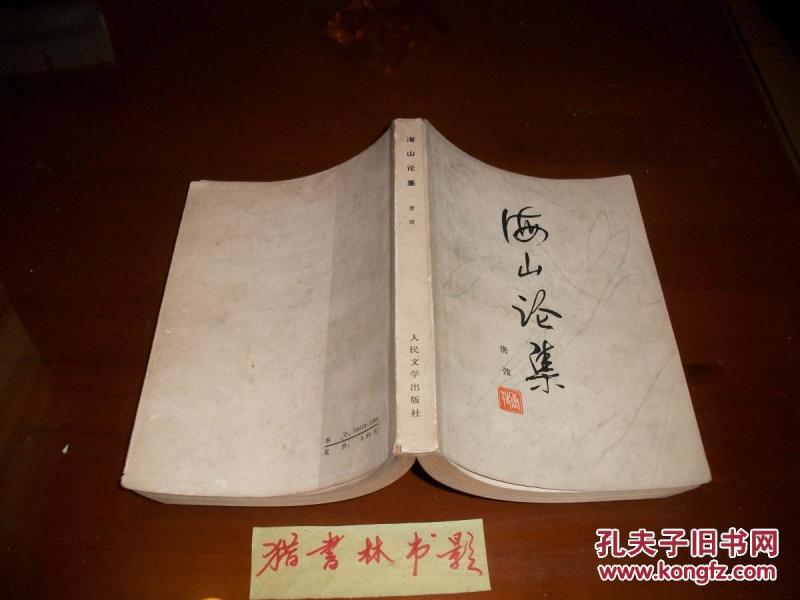 海山论集
唐弢
人民文学出版社
海山论集
唐弢
书号
定价
猎书林书影
孔夫子旧书网
www.kongfz.com